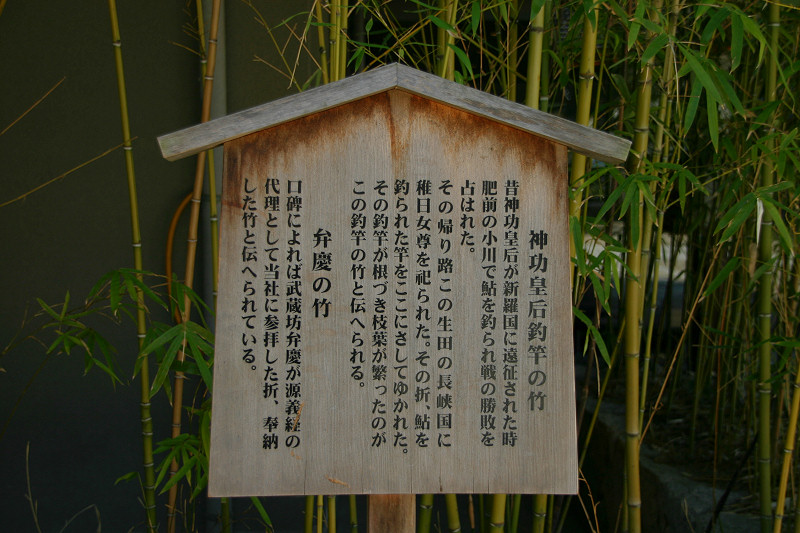 神功皇后釣竿の竹
昔神功皇后が新羅国に遠征された時
肥前の小川で鮎を釣られ戦の勝敗を
占はれた。
その帰り路この生田の長峡国に
稚日女尊を祀られた。その折、鮎を
釣られた竿をここにさしてゆかれた。
その釣竿が根づき枝葉が繁ったのが
この釣竿の竹と伝へられる。
弁慶の竹
口碑によれば武蔵坊弁慶が源義経の
代理として当社に参拝した折、奉納
した竹と伝へられている。